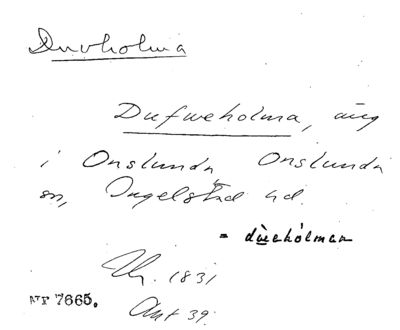 Duvholma
Dufweholma, äng
i Onslunda Onslunda
sn, Ingelstad hd.
= dùvehólman
1831
NT 7665. Akt 39.